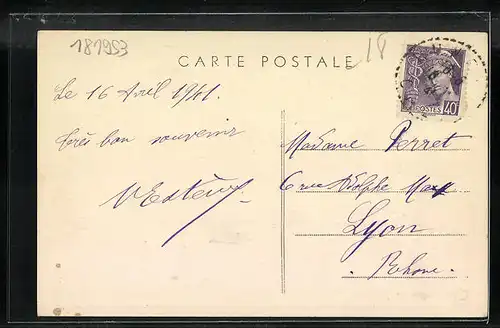 181953
18
CARTE POSTALE
POSTES 40
Le 16 Avril 1941.
très bon souvenir
Madame Perret
6 rue Adolphe Max
Lyon
Rhone.